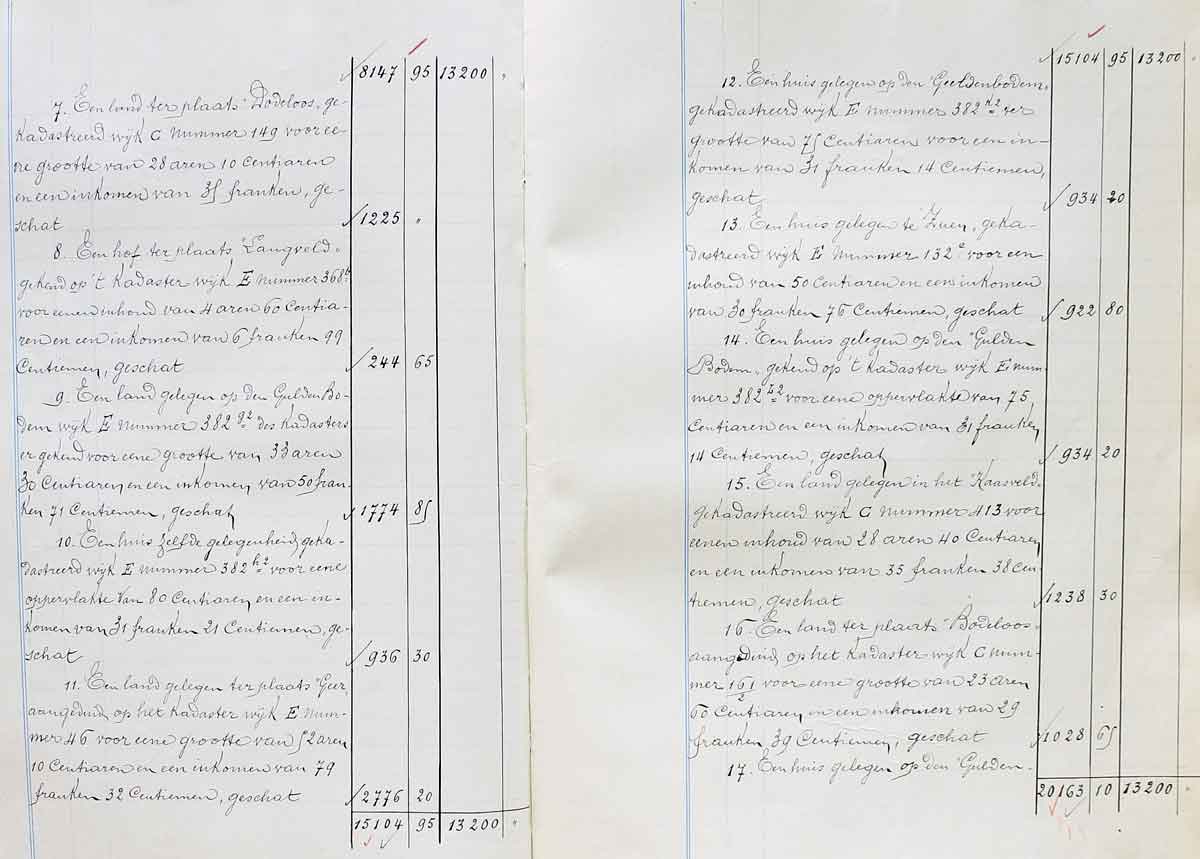 8147 | 95 | 13200 | "
7. Een land ter plaats "Bodeloos", ge-
kadastreerd wijk C nummer 149 voor ee-
ne grootte van 28 aren 10 Centiaren
en een inkomen van 35 franken, ge-
schat 1225 "
8. Een hof ter plaats "Langveld"
gekend op 't kadaster wijk E nummer 368b
voor eenen inhoud van 4 aren 60 Centia-
ren en een inkomen van 6 franken 99
Centiemen, geschat 244 | 65
9. Een land gelegen op den Gulden Bo-
dem wijk E nummer 382 g2 des kadasters
er gekend voor eene grootte van 33 aren
30 Centiaren en een inkomen van 50 fran-
ken 71 Centiemen, geschat 1774 | 85
10. Een huis zelfde gelegenheid, geka-
dastreerd wijk E nummer 382 h2 voor eene
oppervlakte van 80 Centiaren en een in-
komen van 31 franken 21 Centiemen, ge-
schat 936 | 30
11. Een land gelegen ter plaats "Geer,
aangeduid op het kadaster wijk E num-
mer 46 voor eene grootte van 52 aren
10 Centiaren en een inkomen van 79
franken 32 Centiemen, geschat 2776 | 20
15104 | 95 | 13200 | "
15104 | 95 | 13200 | "
12. Een huis gelegen op den "Geeldenbodem"
gekadastreerd wijk E nummer 382 k2 ter
grootte van 75 Centiaren voor een in-
komen van 31 franken 14 Centiemen,
geschat 934 | 20
13. Een huis gelegen te Zuen, geka-
dastreerd wijk E nummer 132e voor een
inhoud van 50 Centiaren en een inkomen
van 30 franken 76 Centiemen, geschat 922 | 80
14. Een huis gelegen op den "Gulden
Bodem" gekend op 't kadaster wijk E num-
mer 382 voor eene oppervlakte van 75
Centiaren en een inkomen van 31 franken
14 Centiemen, geschat 934 | 20
15. Een land gelegen in het "Kaasveld"
gekadastreerd wijk C nummer 413 voor
eenen inhoud van 28 aren 40 Centiaren
en een inkomen van 35 franken 38 Cen-
tiemen, geschat 1238 | 30
16. Een land ter plaats "Bodeloos"
aangeduid op het kadaster wijk C num-
mer 161/2 voor eene grootte van 23 aren
60 Centiaren en een inkomen van 29
franken 39 Centiemen, geschat 1028 | 65
17. Een huis gelegen op den "Gulden-
20163 | 10 | 13200 | "